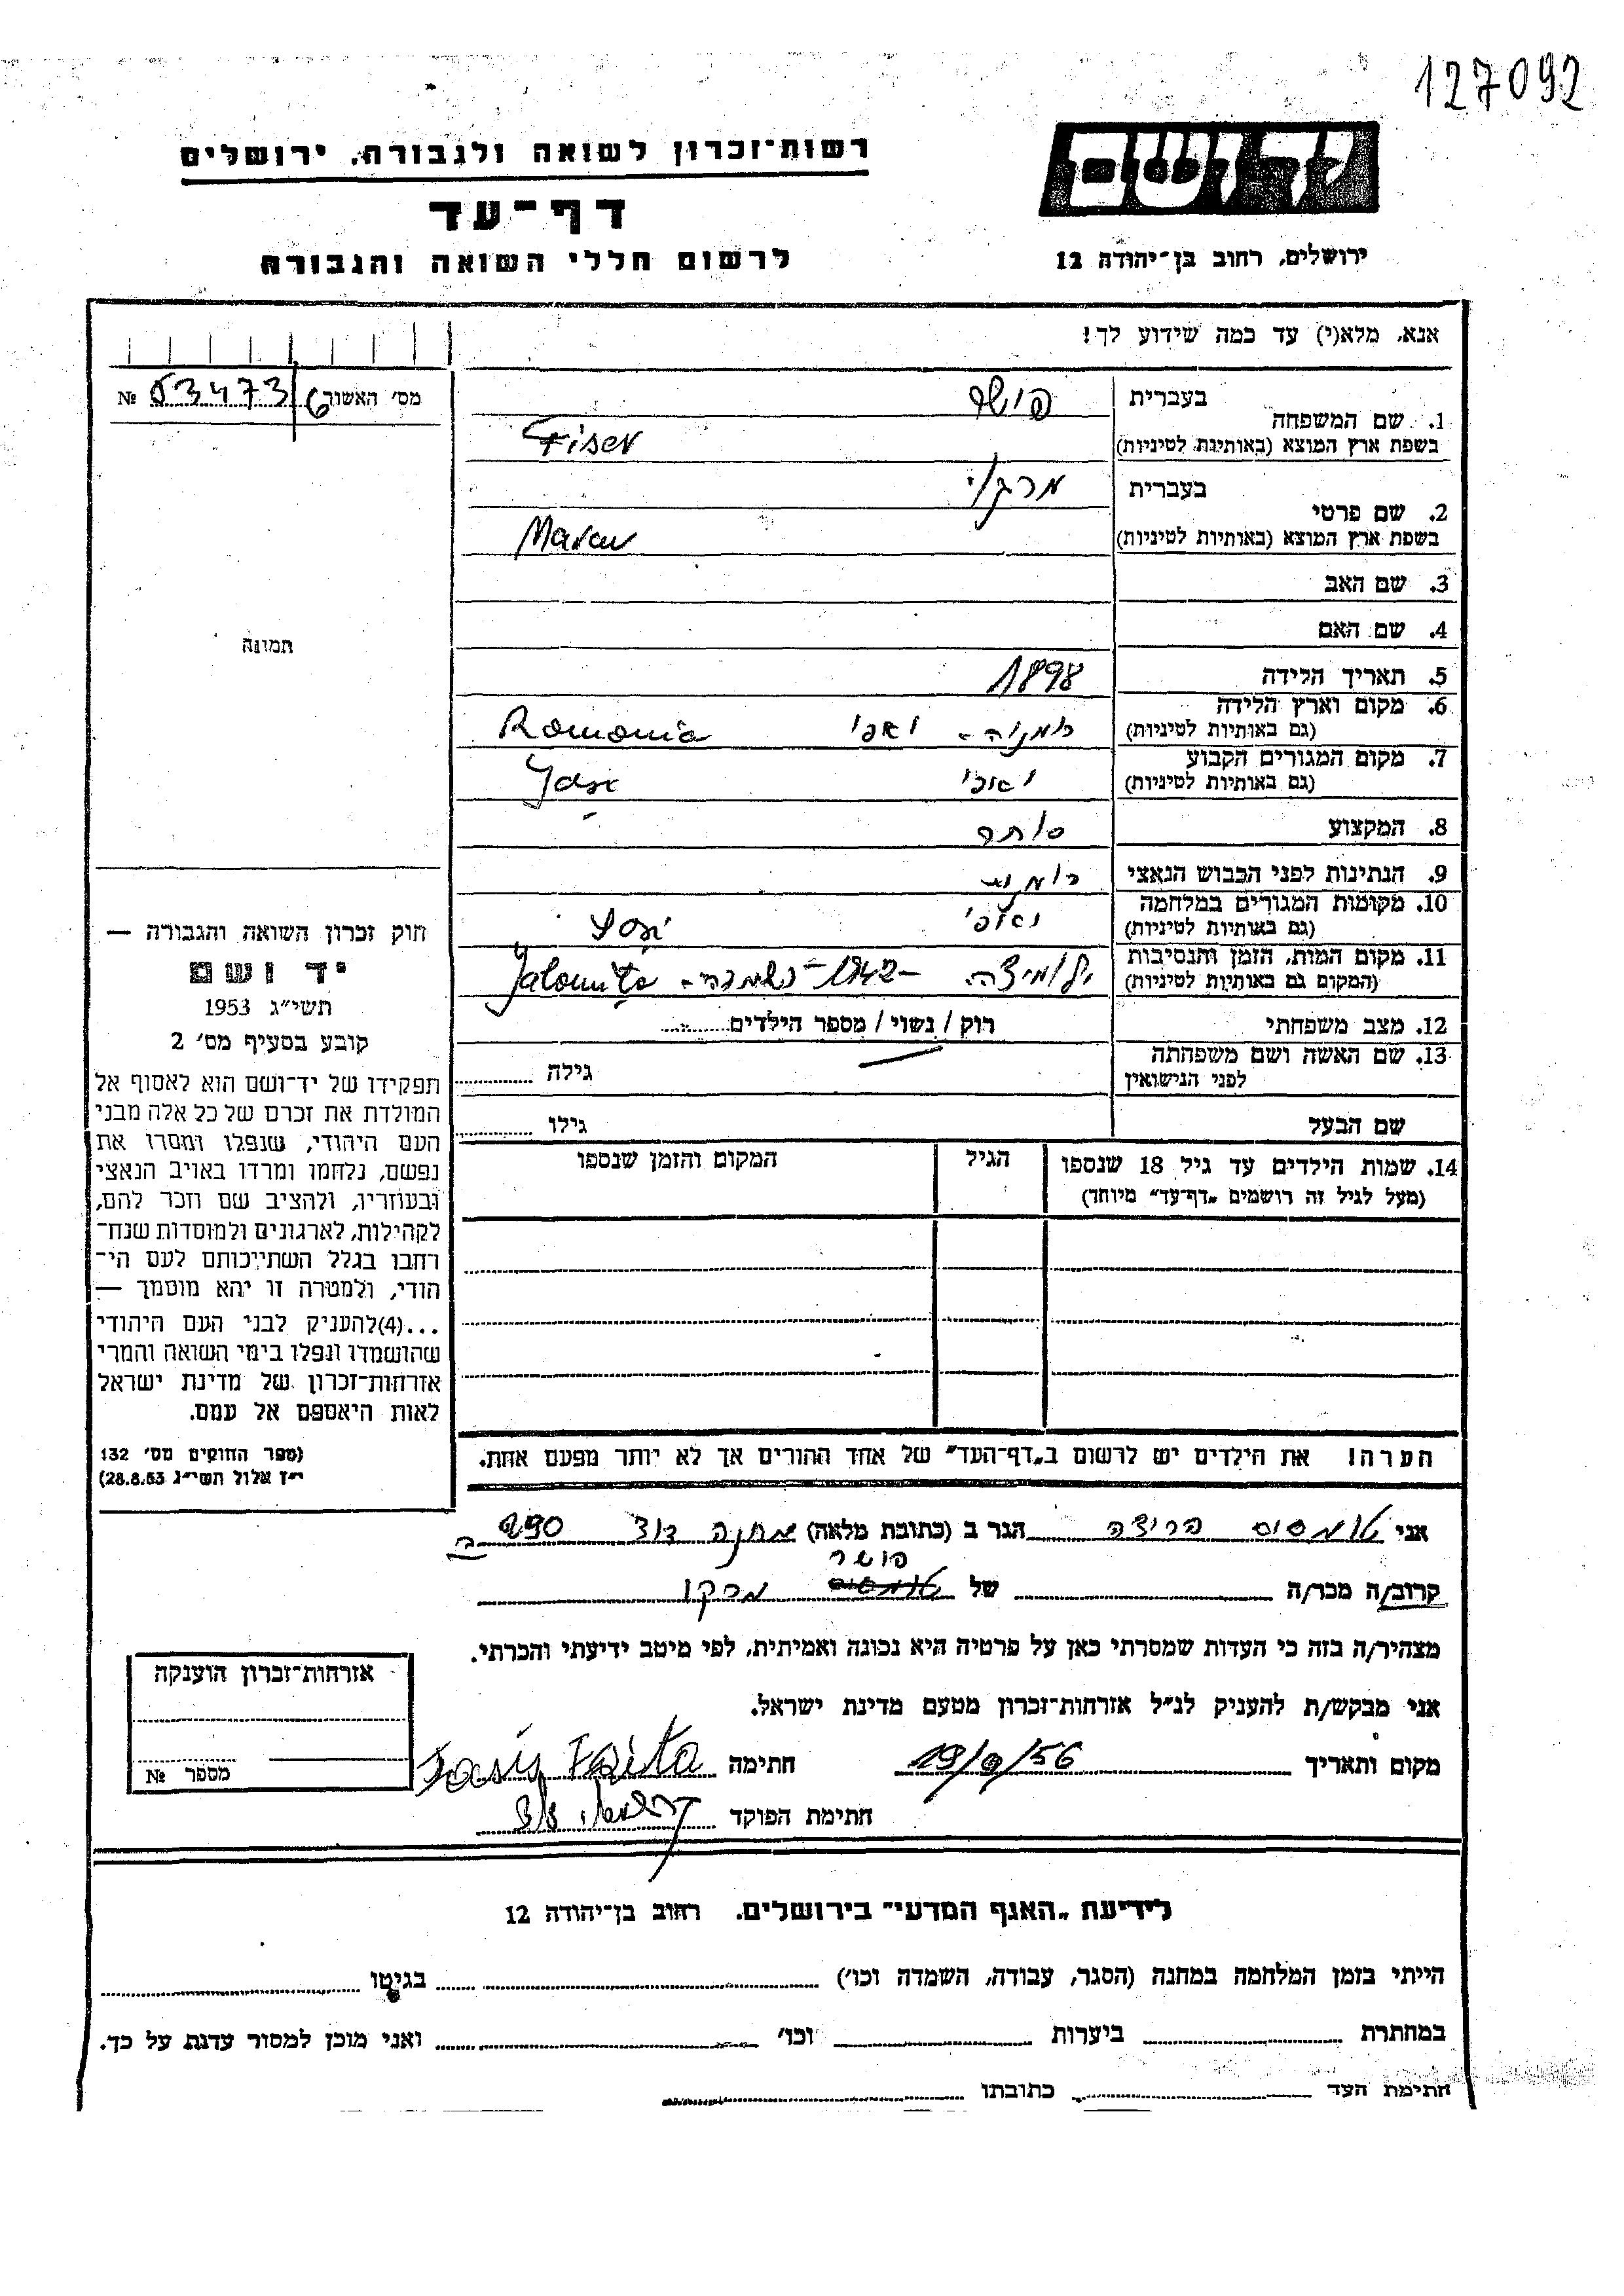 127092
יד ושם
ירושלים, רחוב בן־יהודה 12
רשות־זכרון לשואה ולגבורה, ירושלים
דף־עד
לרשום חללי השואה והגבורה
אנא, מלא(י) עד כמה שידוע לך!
מס׳ האשור 53473/6 №
תמונה
1. שם המשפחה
בעברית פישר
בשפת ארץ המוצא (באותיות לטיניות) Fiser
2. שם פרטי
בעברית
בשפת ארץ המוצא (באותיות לטיניות)
3. שם האב
4. שם האם
5. תאריך הלידה 1898
6. מקום וארץ הלידה
(גם באותיות לטיניות) רומניה - יאסי Romania
7. מקום המגורים הקבוע
(גם באותיות לטיניות) יאסי Jasi
8. המקצוע סוחר
9. הנתינות לפני הכבוש הנאצי
10. מקומות המגורים במלחמה
(גם באותיות לטיניות) יאסי
11. מקום המות, הזמן והנסיבות
(המקום גם באותיות לטיניות) ילומיצה - 1942 - Jalomita
12. מצב משפחתי רוק / נשוי / מספר הילדים
13. שם האשה ושם משפחתה
לפני הנישואין גילה
שם הבעל גילו
14. שמות הילדים עד גיל 18 שנספו
(מעל לגיל זה רושמים „דף־עד״ מיוחד)
הגיל
המקום והזמן שנספו
הערה! את הילדים יש לרשום ב„דף־העד״ של אחד ההורים אך לא יותר מפעם אחת.
חוק זכרון השואה והגבורה —
יד ושם
תשי״ג 1953
קובע בסעיף מס׳ 2
תפקידו של יד־ושם הוא לאסוף אל
המולדת את זכרם של כל אלה מבני
העם היהודי, שנפלו ומסרו את
נפשם, נלחמו ומרדו באויב הנאצי
ובעוזריו, ולהציב שם וזכר להם,
לקהילות, לארגונים ולמוסדות שנח־
רבו בגלל השתייכותם לעם הי־
הודי, ולמטרה זו יהא מוסמך —
...(4)להעניק לבני העם היהודי
שהושמדו ונפלו בימי השואה והמרי
אזרחות־זכרון של מדינת ישראל
לאות היאספם אל עמם.
(ספר החוקים מס׳ 132
י״ז אלול תשי״ג 28.8.53)
אני הגר ב (כתובת מלאה) מחנה דוד 290
פישר
קרוב/ה מכר/ה של מרקו
מצהיר/ה בזה כי העדות שמסרתי כאן על פרטיה היא נכונה ואמיתית, לפי מיטב ידיעתי והכרתי.
אני מבקש/ת להעניק לנ״ל אזרחות־זכרון מטעם מדינת ישראל.
מקום ותאריך 19/9/56 חתימה
חתימת הפוקד
אזרחות־זכרון הוענקה
מספר №
לידיעת „האגף המדעי״ בירושלים. רחוב בן־יהודה 12
הייתי בזמן המלחמה במחנה (הסגר, עבודה, השמדה וכו׳) בגיטו
במחתרת ביערות וכו׳ ואני מוכן למסור עדות על כך.
חתימת העד כתובתו